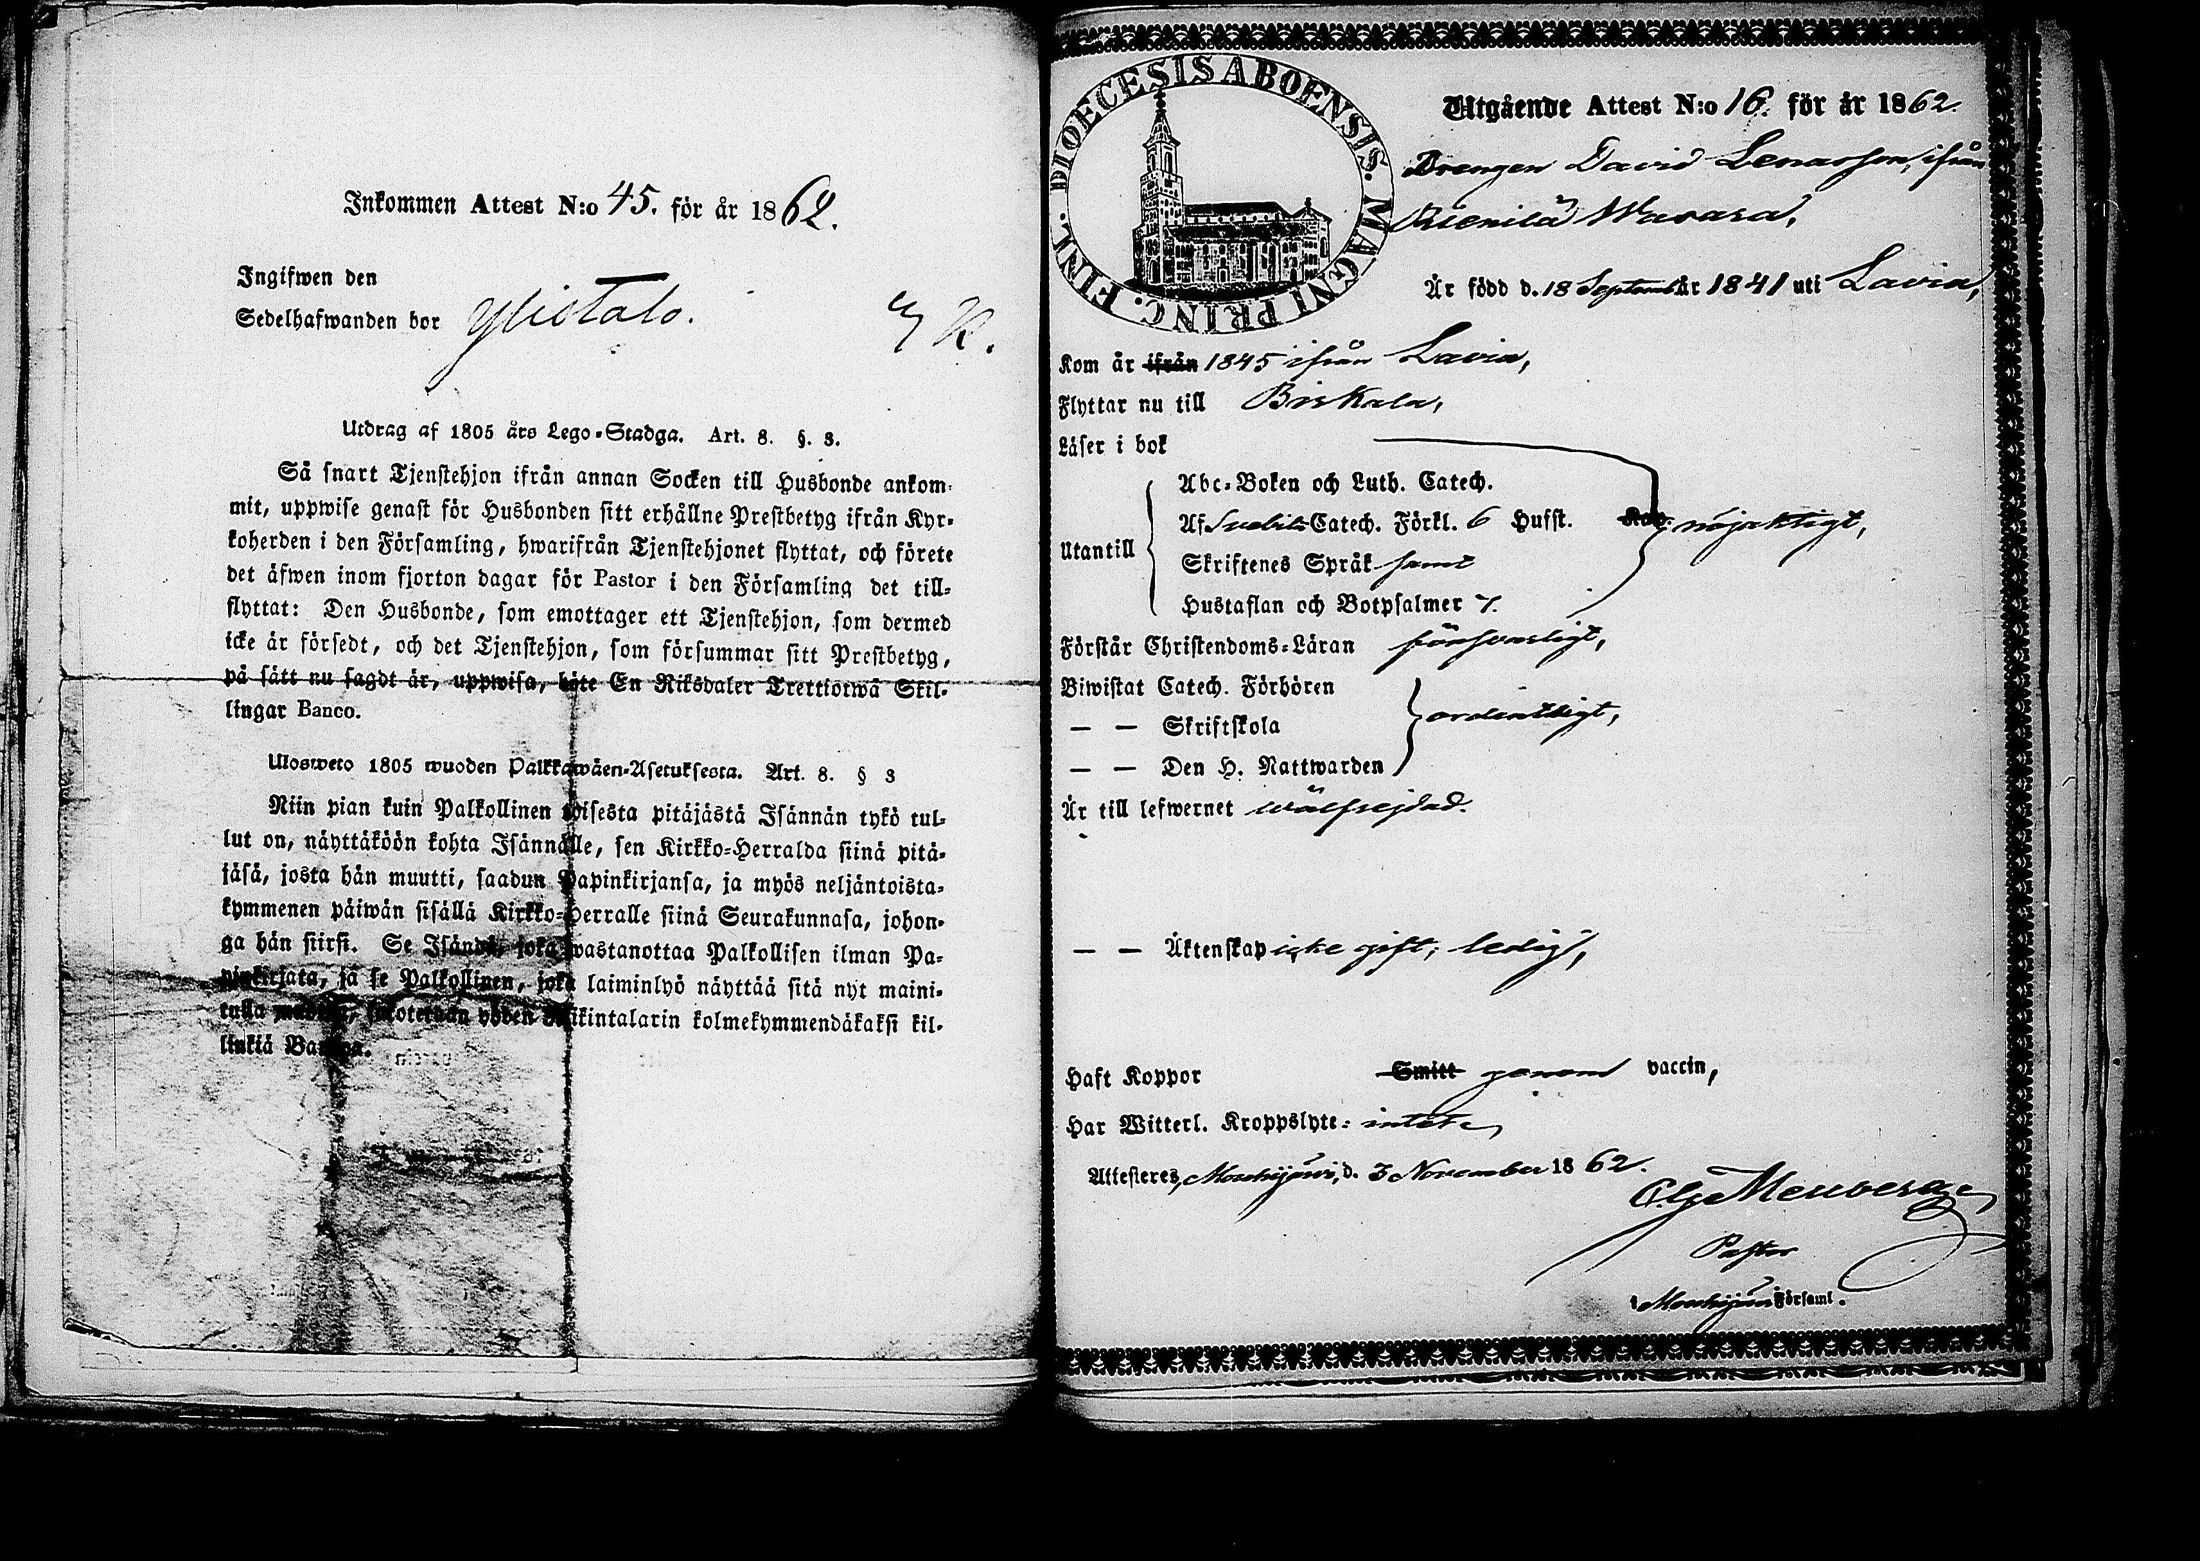 Inkommen Attest N:o 45. för år 1862.
Ingifwen den
Sedelhafwanden bor Ylistalo.
Utdrag af 1805 års Lego-Stadga. Art. 8. §. 3.
Så snart Tjenstehjon ifrån annan Socken till Husbonde ankom-
mit, uppwise genast för Husbonden sitt erhållne Prestbetyg ifrån Kyr-
koherden i den Församling, hwarifrån Tjenstehjonet flyttat, och förete
det äfwen inom fjorton dagar för Pastor i den Församling det till-
flyttat: Den Husbonde, som emottager ett Tjenstehjon, som dermed
icke är försedt, och det Tjenstehjon, som försummar sitt Prestbetyg,
på sätt nu sagdt är, uppwisa, böte En Riksdaler Trettiotwå Skil-
lingar Banco.
Ulosweto 1805 wuoden Palkkawäen-Asetuksesta. Art. 8. § 3
Niin pian kuin Palkollinen toisesta pitäjästä Isännän tykö tul-
lut on, näyttäköön kohta Isännälle, sen Kirkko-Herralda siinä pitä-
jäsä, josta hän muutti, saadun Papinkirjansa, ja myös neljäntoista-
kymmenen päiwän sisällä Kirkko-Herralle siinä Seurakunnasa, johon-
ga hän siirsi. Se Isändä, joka wastanottaa Palkollisen ilman Pa-
pinkirjata, ja se Palkollinen, joka laiminlyö näyttää sitä nyt maini-
tulla muodon, sakotetaan yhden Rikintalarin kolmekymmendäkaksi kil-
linkiä Bancoa.
DIOECESIS ABOENSIS. MAGNI PRINC. FINL.
Utgående Attest N:o 16. för år 1862.
Drengen David Lenasson, ifrån
Wasara,
Är född d. 18 September år 1841 uti Lavia,
Kom år ifrån 1845 ifrån Lavia,
Flyttar nu till Birkala,
Läser i bok
Abc-Boken och Luth. Catech.
Af Svebili Catech. Förkl. 6 Hufst. Kap. nöjaktigt,
Utantill
Skriftenes Språk samt
Hustaflan och Botpsalmer 7.
Förstår Christendoms-Läran försvarligt,
Biwistat Catech. Förhören
— — Skriftskola ordentligt,
— — Den H. Nattwarden
Är till lefwernet wälfrejdad.
— — Äktenskap icke gift; ledig,
Haft Koppor Smitt genom vaccin,
Har Witterl. Kroppslyte: intet
Attesteres, Mouhijärvi, d. 3 November 1862.
Pastor
i Mouhijärvi Församl.